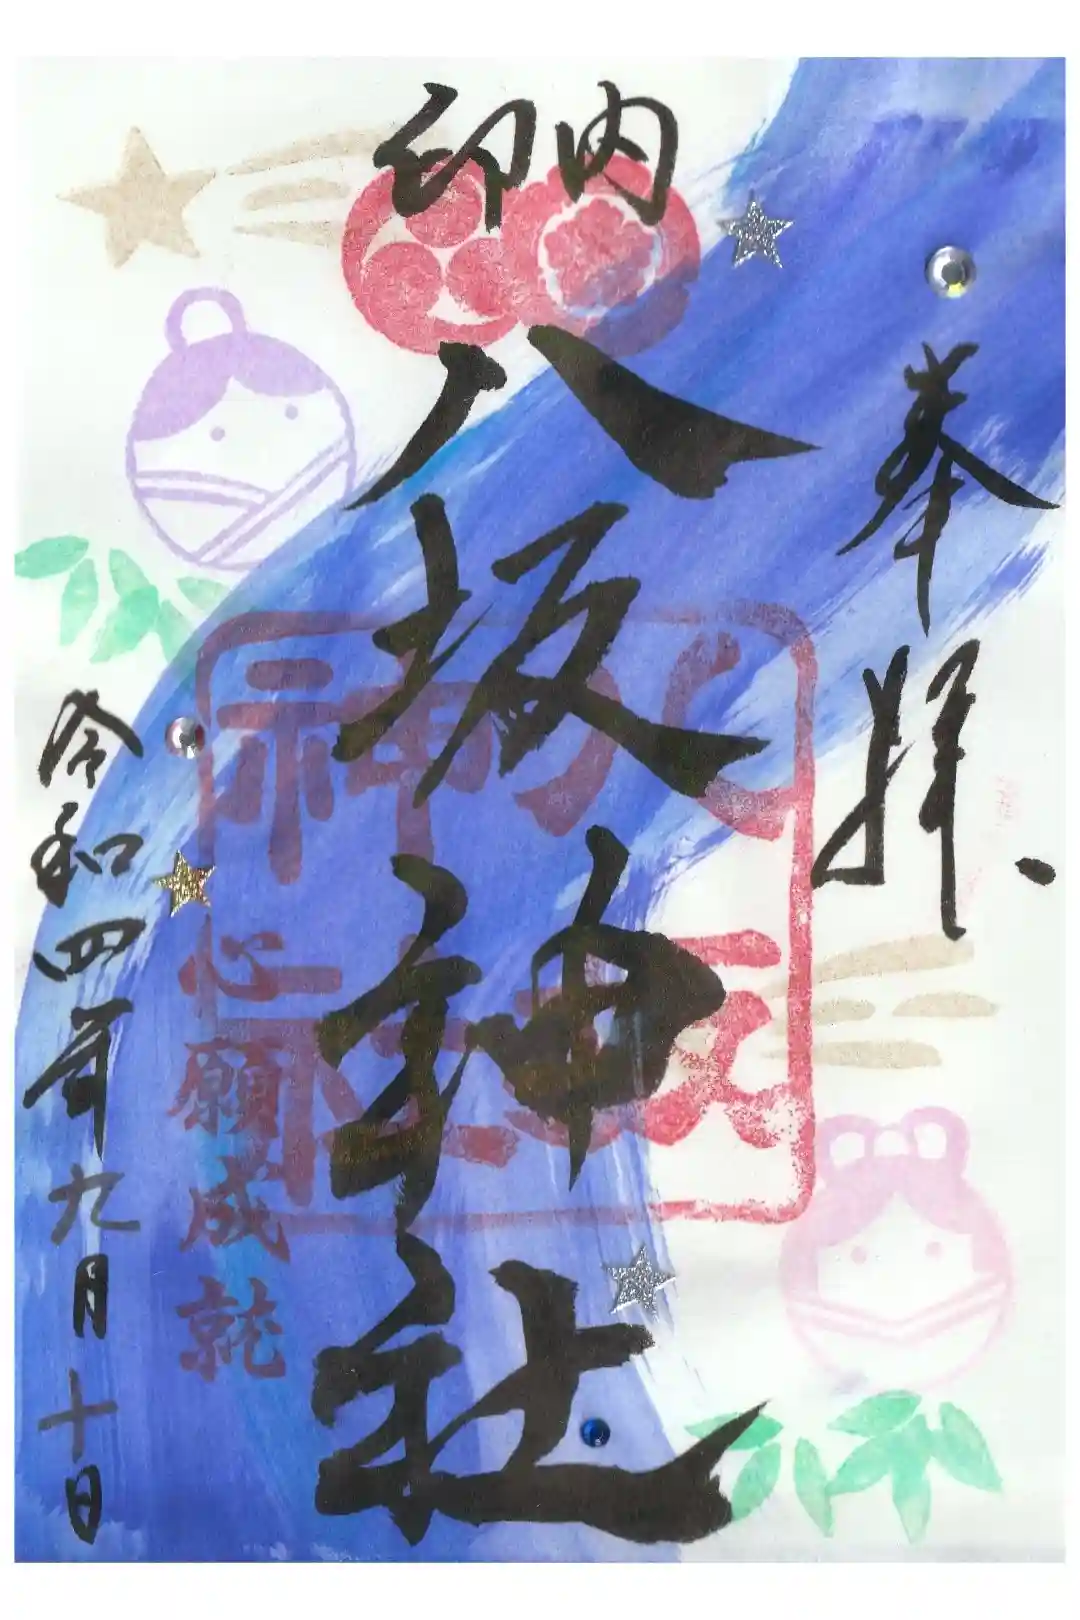 奉拝、
印内
八坂神社
八坂
神社
心願成就
令和四年九月十日